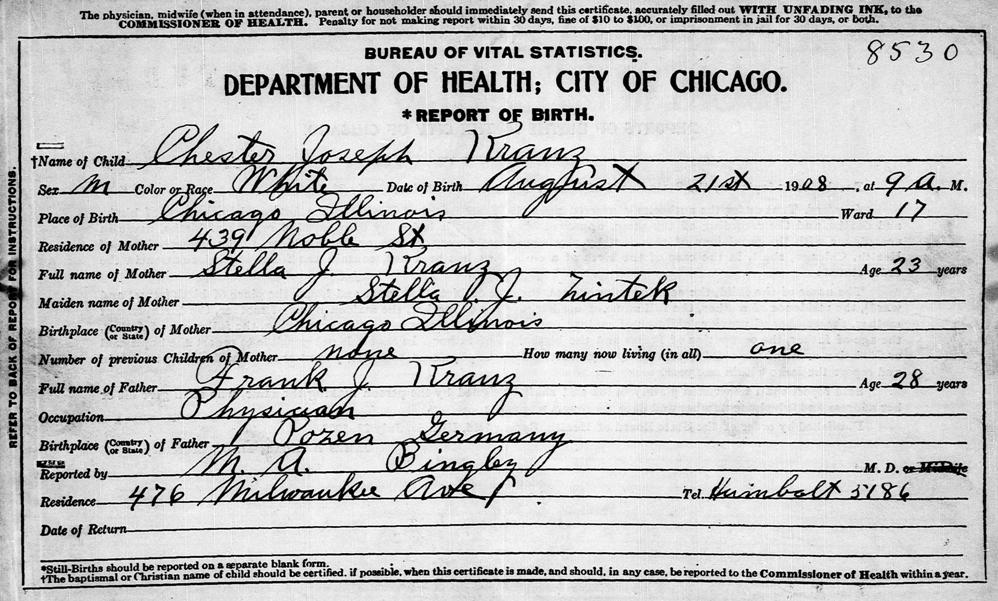 The physician, midwife (when in attendance), parent or householder should immediately send this certificate, accurately filled out WITH UNFADING INK, to the
COMMISSIONER OF HEALTH. Penalty for not making report within 30 days, fine of $10 to $100, or imprisonment in jail for 30 days, or both.
8530
BUREAU OF VITAL STATISTICS.
DEPARTMENT OF HEALTH; CITY OF CHICAGO.
*REPORT OF BIRTH.
†Name of Child Chester Joseph Kranz
Sex M Color or Race White Date of Birth August 21st 1908, at 9 A. M.
Place of Birth Chicago Illinois Ward 17
Residence of Mother 439 Noble St
Full name of Mother Stella J. Kranz Age 23 years
Maiden name of Mother Stella J. Zintek
Birthplace (Country or State) of Mother Chicago Illinois
Number of previous Children of Mother none How many now living (in all) one
Full name of Father Frank J. Kranz Age 28 years
Occupation Physician
Birthplace (Country or State) of Father Pozen Germany
Reported by M. A. Bingley M. D. or Midwife
Residence 476 Milwaukee Ave Tel. Humbolt 5186
Date of Return
*Still-Births should be reported on a separate blank form.
†The baptismal or Christian name of child should be certified, if possible, when this certificate is made, and should, in any case, be reported to the Commissioner of Health within a year.
REFER TO BACK OF REPORT FOR INSTRUCTIONS.